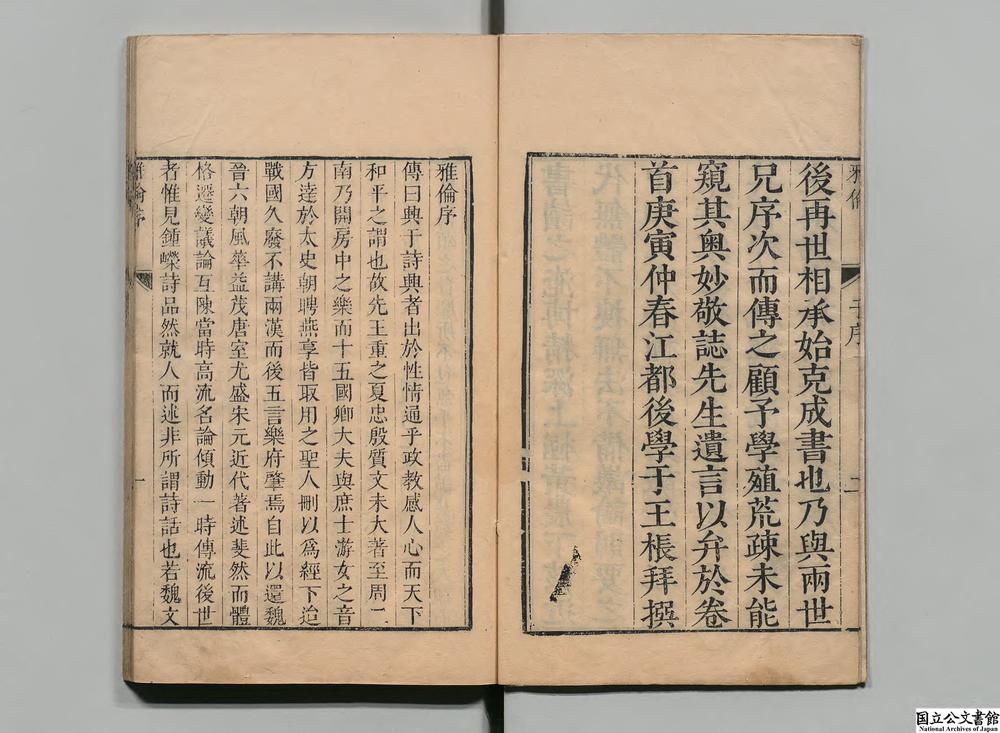 雅倫
于序
二
後再世相承始克成書也乃與兩世
兄序次而傳之顧予學殖荒疎未能
窺其奧妙敬誌先生遺言以弁於卷
首庚寅仲春江都後學于王棖拜撰
雅倫序
傳曰興于詩興者出於性情通乎政教感人心而天下
和平之謂也故先王重之夏忠殷質文未大著至周二
南乃開房中之樂而十五國卿大夫與庶士游女之音
方達於太史朝聘燕享皆取用之聖人刪以爲經下迨
戰國久廢不講兩漢而後五言樂府肇焉自此以還魏
晉六朝風華益茂唐室尤盛宋元近代著述斐然而體
格遞變議論互陳當時高流名論傾動一時傳流後世
者惟見鍾嶸詩品然就人而述非所謂詩話也若魏文
雅倫序
一
国立公文書館
National Archives of Japan